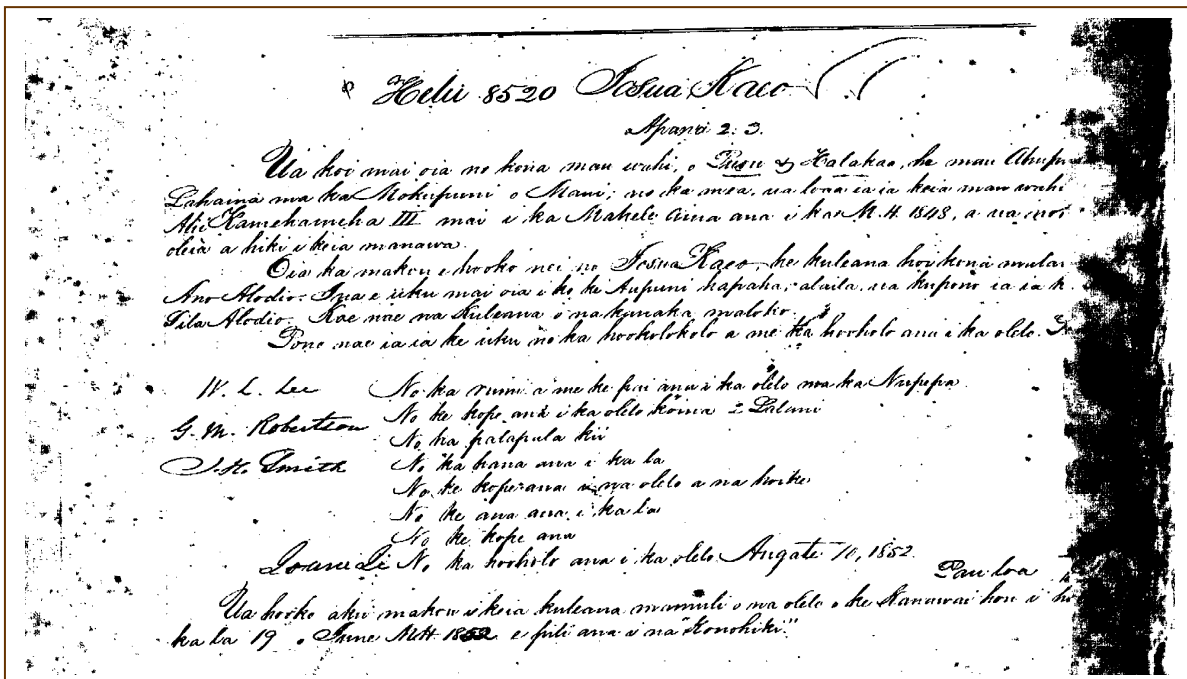 Helu 8520 Iosua Kaeo
Apana 2. 3.
Ua koi mai oia no kona mau wahi, o Puou & Halakaa, he mau Ahupu
Lahaina ma ka Mokupuni o Maui; no ka mea, ua loaa ia ia keia mau wahi
Alii Kamehameha III mai i ka Mahele aina ana i ka M.H. 1848, a ua
oleia a hiki i keia manawa.
Oia ka makou e hooko nei no Iosua Kaeo, he kuleana hookona
Ano Alodio. Ina e uku mai oia i ko ke Aupuni hapaha, alaila, ua kupono ia ia k
Sila Alodio. Koe nae na Kuleana o na kanaka maloko.
Pono nae ia ia ke uku no ka hookolokolo a me ka hooholo ana i ka olelo.
W. L. Lee No ka rumi a me ke pai ana i ka olelo ma ka Nupepa
No ke kope ana i ka olelo koina 2 Lalani
G. M. Robertson
No ka palapala kii
J. H. Smith No ka hana ana i ka la
No ke kope ana i na olelo a na hoike
No ke ana ana i ka la
No ke kope ana
Ioane Ii No ka hooholo ana i ka olelo Augate 10, 1852.
Pau loa
Ua hooko aku makou i keia kuleana mamuli o na olelo o ke Kanawai hou i
ka la 19 o Iune M.H. 1852 e pili ana i na "Konohiki".